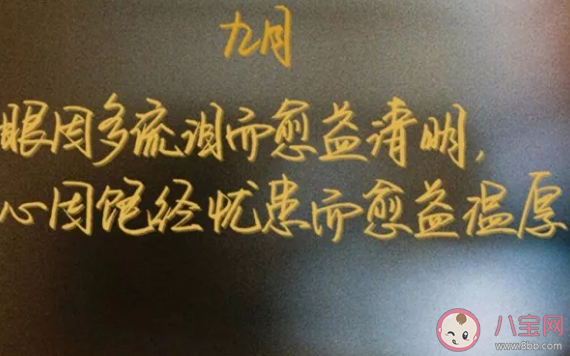 九月
眼因多流泪而愈益清明,
心因饱经忧患而愈益温厚
八宝网
www.8bb.com